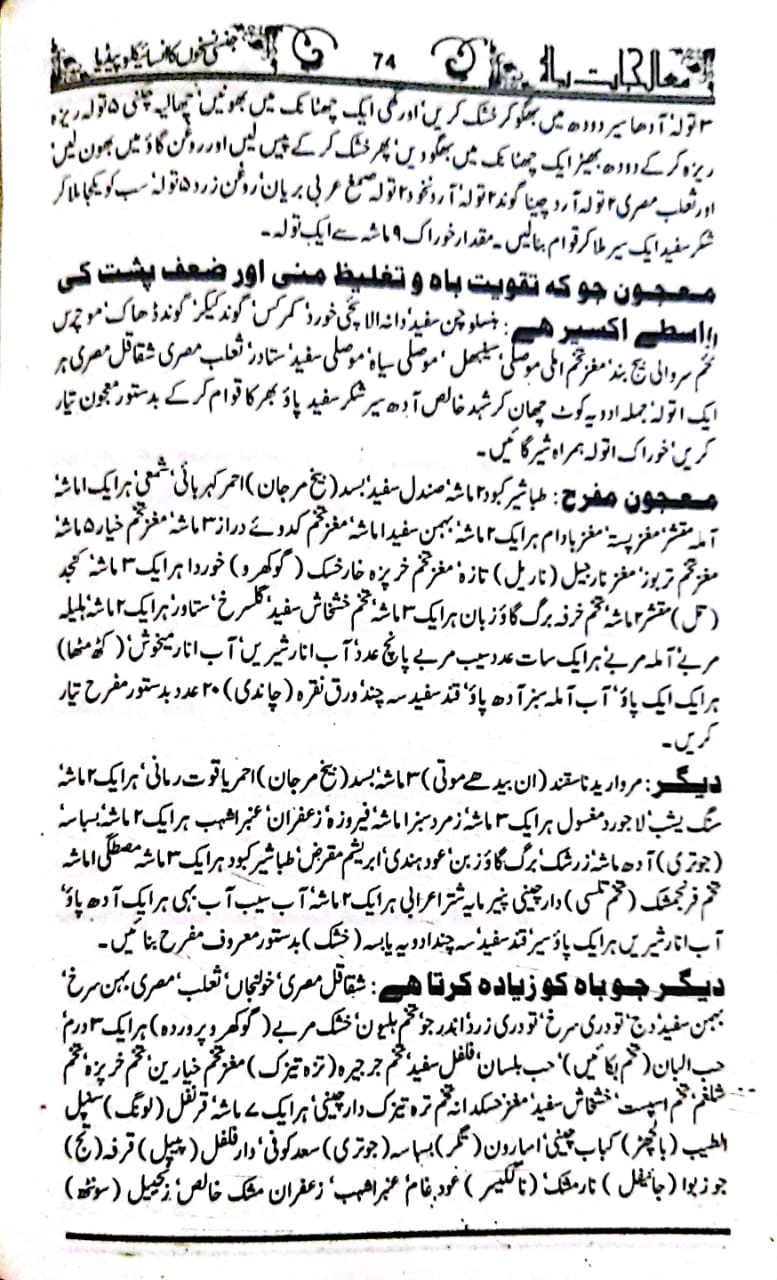 معالجات باہ 74 جنسی نسخوں کا انسائیکلو پیڈیا
۳ تولہ' آدھا سیر دودھ میں بھگو کر خشک کریں' اور گھی ایک چھٹانک میں بھونیں' چھالیہ چکنی ۵ تولہ ریزہ
ریزہ کر کے دودھ بھیڑ ایک چھٹانک میں بھگو دیں' پھر خشک کر کے پیس لیں اور روغن گاؤ میں بھون لیں'
اور ثعلب مصری ۲ تولہ' آرد چینا گوند ۲ تولہ' آرد نخود ۲ تولہ' صمغ عربی بریاں' روغن زرد ۵ تولہ' سب کو یکجا ملا کر
شکر سفید ایک سیر ملا کر قوام بنالیں۔ مقدار خوراک ۹ ماشہ سے ایک تولہ۔
معجون جو کہ تقویت باہ و تغلیظ منی اور ضعف پشت کی
واسطے اکسیر ھے: بنسلوچن سفید' دانہ الائچی خورد' کمرکس' گوند کیکر' گوند ڈھاک' موچرس
تخم سروالی' بیج بند' مغز تخم املی' موصلی سینبھل' موصلی سیاہ' موصلی سفید' ستاور' ثعلب مصری' شقاقل مصری ہر
ایک ا تولہ' جملہ ادویہ کوٹ چھان کر شہد خالص آدھ سیر' شکر سفید پاؤ بھر کا قوام کر کے بدستور معجون تیار
کریں' خوراک ا تولہ ہمراہ شیر گائیں۔
معجون مفرح: طباشیر کبود ۲ ماشہ' صندل سفید' بسد (بیخ مرجان) احمر' کہربائی شمعی' ہر ایک ا ماشہ
آملہ مقشر' مغز پستہ' مغز بادام ہر ایک ۲ ماشہ' بہمن سفید ا ماشہ' مغز تخم کدوئے دراز ۳ ماشہ' مغز تخم خیار ۵ ماشہ
مغز تخم تربوز' مغز نارجیل (ناریل) تازہ' مغز تخم خرپزہ' خارخسک (گوکھرو) خوردا ہر ایک ۳ ماشہ' کنجد
(تل) مقشر ۲ ماشہ' تخم خرفہ' برگ گاؤ زبان ہر ایک ۳ ماشہ' تخم خشخاش سفید' گلسرخ' ستاور' ہر ایک ۲ ماشہ' ہلیلہ
مربے' آملہ مربے' ہر ایک سات عدد' سیب مربے پانچ عدد' آب انار شیریں' آب انار میخوش' (کٹ مٹھا)
ہر ایک ایک پاؤ' آب آملہ سبز آدھ پاؤ' قند سفید سہ چند' ورق نقرہ (چاندی) ۲۰ عدد بدستور مفرح تیار
کریں۔
دیگر: مروارید ناسفتہ (ان بیدھے موتی) ۳ ماشہ' بسد (بیخ مرجان) احمر' یاقوت رمانی' ہر ایک ۲ ماشہ
سنگ یشب' لاجورد مغسول ہر ایک ۳ ماشہ' زمرد سبز ا ماشہ' فیروزہ' زعفران' عنبر اشہب ہر ایک ۲ ماشہ' بسباسہ
(جوتری) آدھ ماشہ' زرشک' برگ گاؤ زبن' عود ہندی' ابریشم مقرض' طباشیر کبود ہر ایک ۳ ماشہ' مصطگی ا ماشہ
تخم فرنجمشک (تخم تلسی) دارچینی' پنیر مایہ شتر اعرابی ہر ایک ۲ ماشہ' آب سیب' آب بہی ہر ایک آدھ پاؤ'
آب انار شیریں ہر ایک پاؤ سیر' قند سفید سہ چند ادویہ یابسہ (خشک) بدستور معروف مفرح بنائیں۔
دیگر جو باہ کو زیادہ کرتا ھے: شقاقل مصری' خولنجاں' ثعلب' مصری' بہمن سرخ'
بہمن سفید' وج' تودری سرخ' تودری زرد' اندر جو' تخم ہلیون' خشک مربے (گوکھرو پروردہ) ہر ایک ۳ درم'
حب البان (تخم بکائیں)' حب بلسان' فلفل سفید' تخم جرجیرہ (ترہ تیزک) مغز تخم خیارین' تخم خرپزہ' تخم
شلغم' تخم اسپست' خشخاش سفید' مغز حسکدانہ' تخم ترہ تیزک' دارچینی' ہر ایک ۷ ماشہ' قرنفل (لونگ) سنبل
الطیب (بالچھڑ) کباب چینی' اسارون (تگر) بسباسہ (جوتری) سعد کوفی' دار فلفل (پیپل) قرفہ (تج)
جوزبوا (جائفل) نارمشک' (ناگکیسر) عود غام' عنبر اشہب' زعفران' مشک خالص' زنجبیل (سونٹھ)